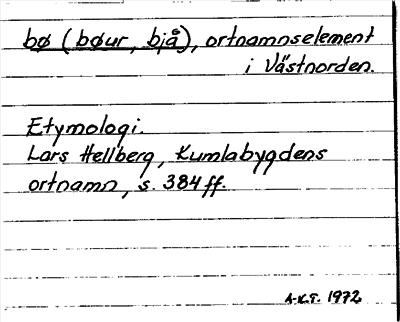 bø (bøur, bjå), ortnamnselement
i Västnorden.
Etymologi.
Lars Hellberg, Kumlabygdens
ortnamn, s. 384 ff.
A.K.T. 1972